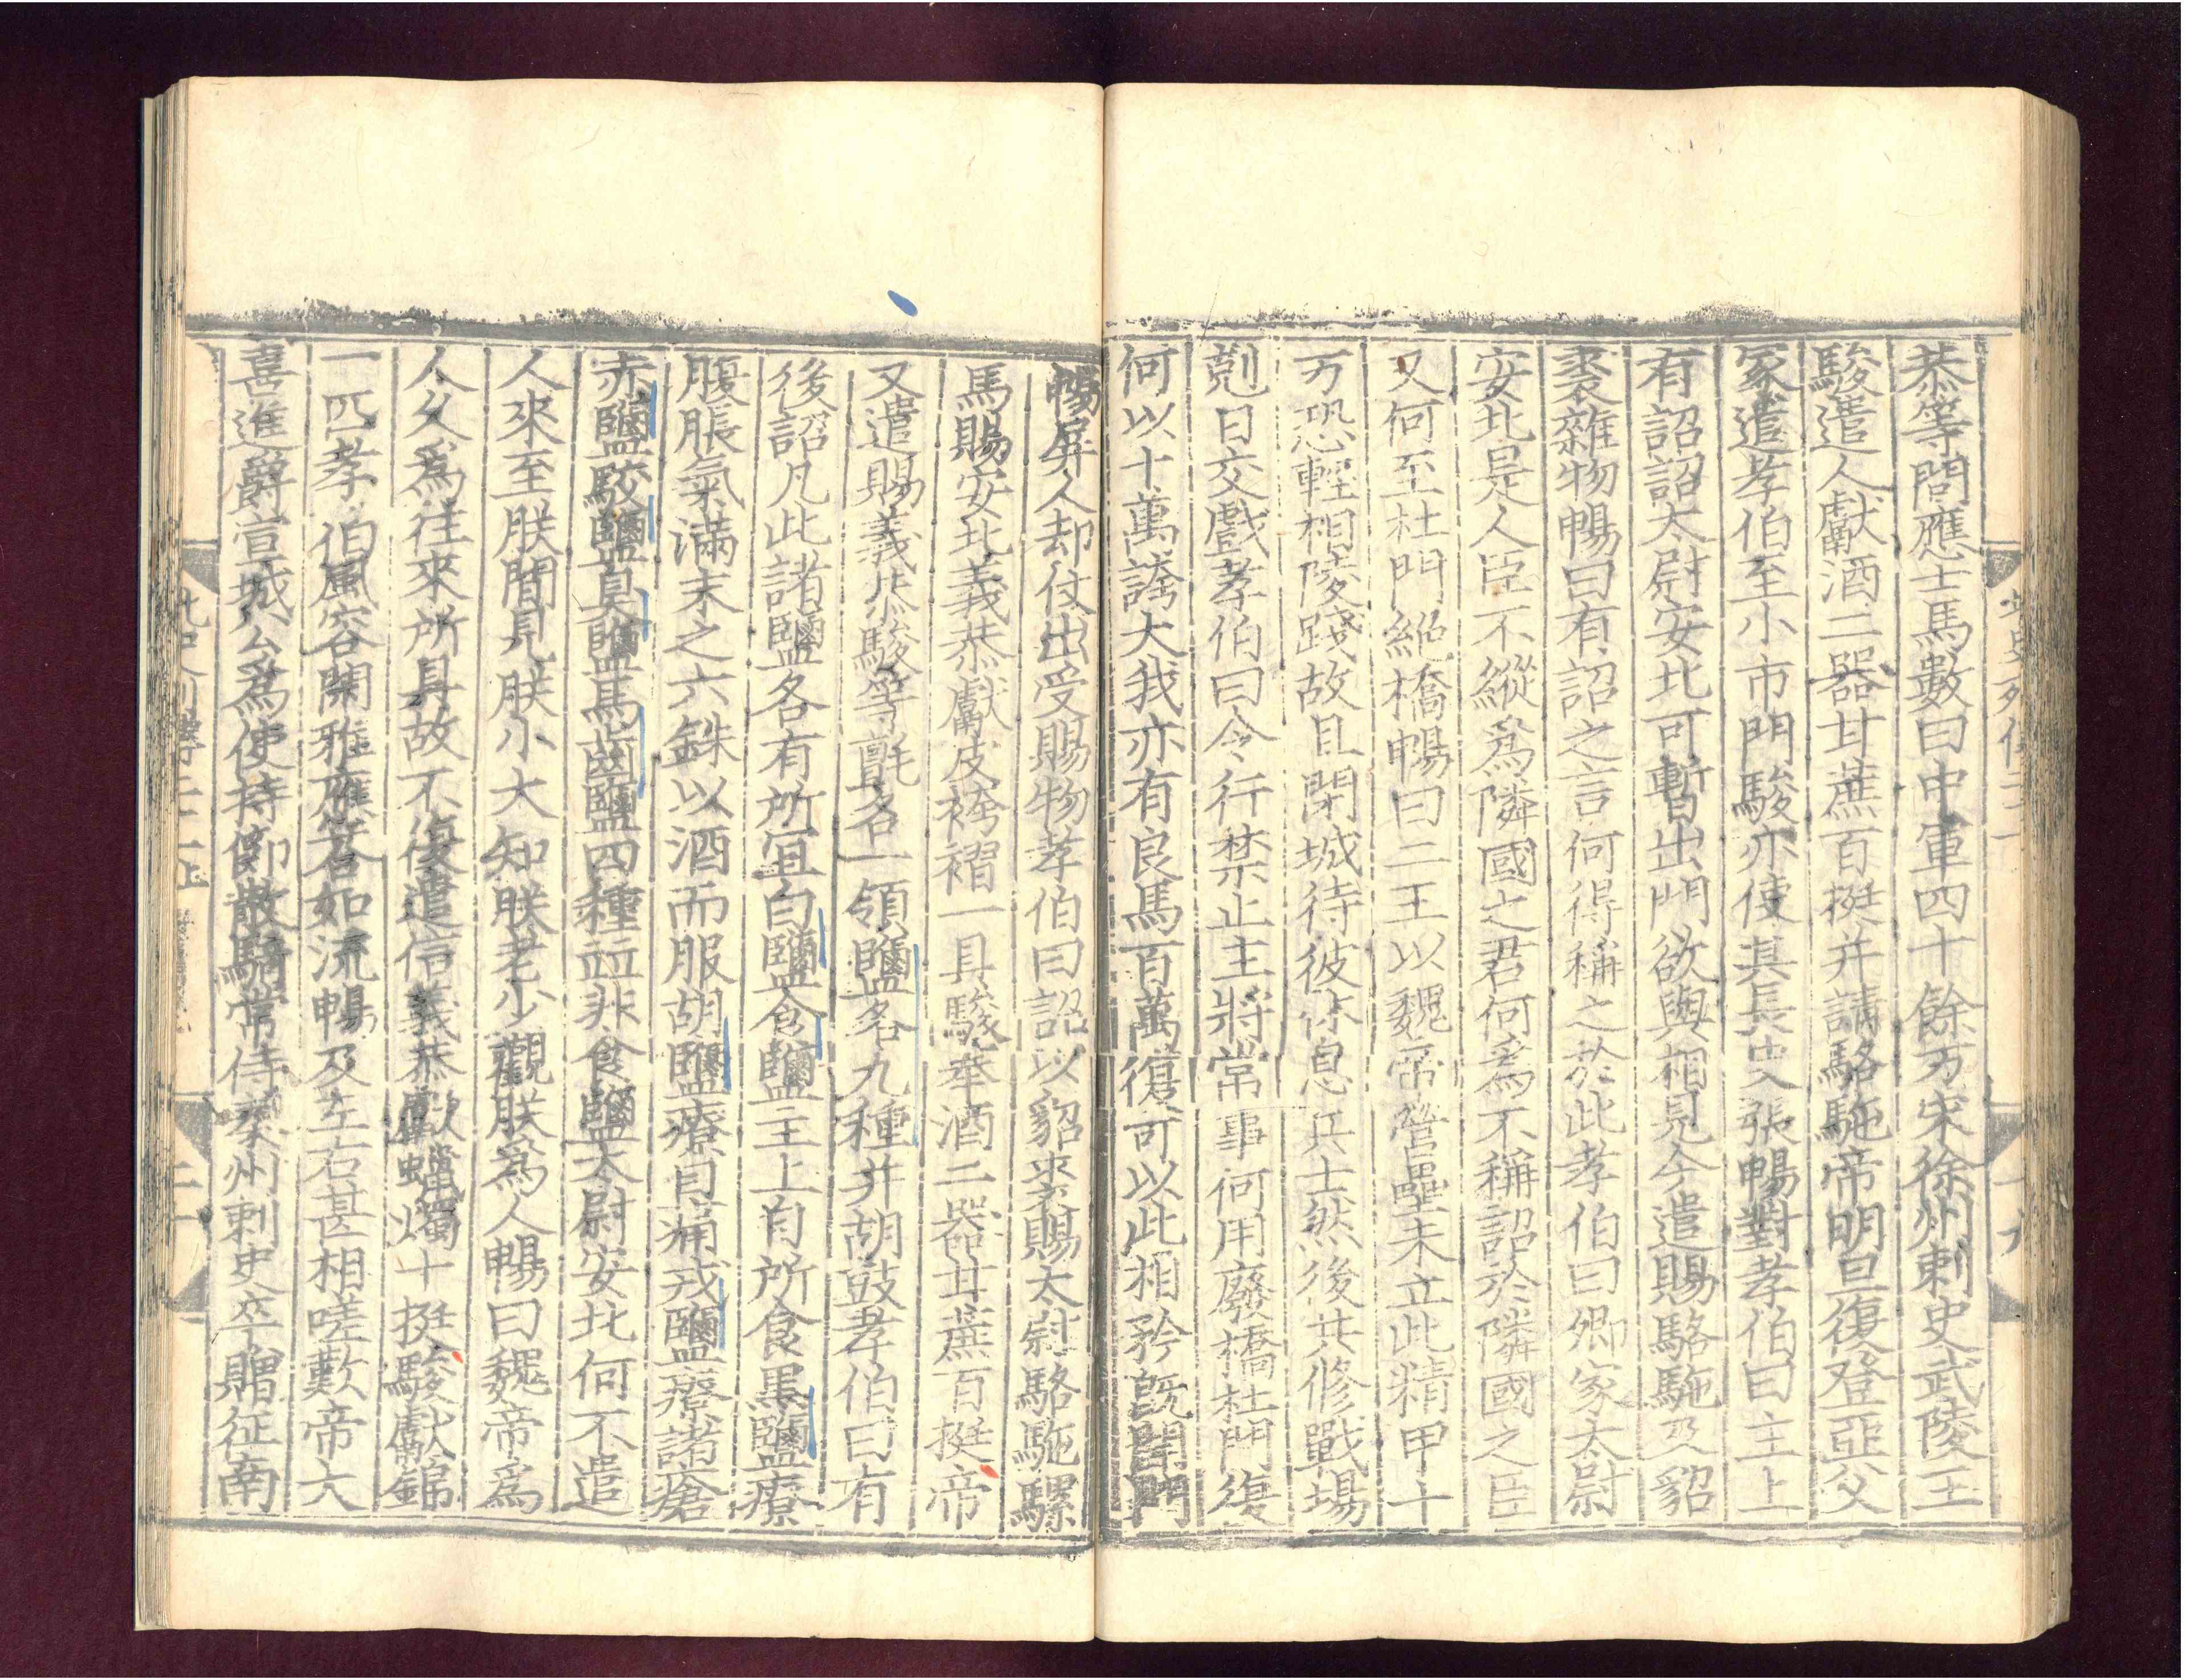 恭等問應士馬數曰中軍四十餘万宋徐州刺史武陵王
駿遣人獻酒二器甘蔗百挺并請駱駞帝明旦復登亞父
冢遣孝伯至小市門駿亦使其長史張暢對孝伯曰主上
有詔詔太尉安北可暫出門欲與相見今遣賜駱駞及貂
裘雜物暢曰有詔之言何得稱之於此孝伯曰卿家太尉
安北是人臣不縱爲隣國之君何爲不稱詔於隣國之臣
又何至杜門絶橋暢曰二王以魏帝營壘未立此精甲十
万恐輕相陵踐故且閉城待彼休息兵士然後共修戰場
剋日交戲孝伯曰令行禁止主將常事何用廢橋杜門復
何以十萬誇大我亦有良馬百萬復可以此相矜旣開門
暢屏人却仗出受賜物孝伯曰詔以貂裘賜太尉駱駞騾
馬賜安北義恭獻皮袴褶一具駿奉酒二器甘蔗百挺帝
又遣賜義恭駿等氈各一領鹽各九種并胡鼓孝伯曰有
後詔凡此諸鹽各有所宜白鹽食鹽主上自所食黑鹽療
腹脹氣滿末之六銖以酒而服胡鹽療目痛戎鹽療諸瘡
赤鹽駮鹽臭鹽馬齒鹽四種並非食鹽太尉安北何不遣
人來至朕間見朕小大知朕老少觀朕爲人暢曰魏帝爲
人久爲往來所具故不復遣信義恭獻蠟燭十挺駿獻錦
一匹孝伯風容閑雅應答如流暢及左右甚相嗟歎帝大
喜進爵宣城公爲使持節散騎常侍秦州刺史卒贈征南